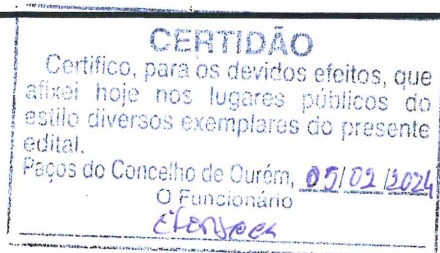 CERTIDÃO
Certifico, para os devidos efeitos, que
afixei hoje nos lugares públicos do
estilo diversos exemplares do presente
edital.
Paços do Concelho de Ourém, 05/02/2024
O Funcionário